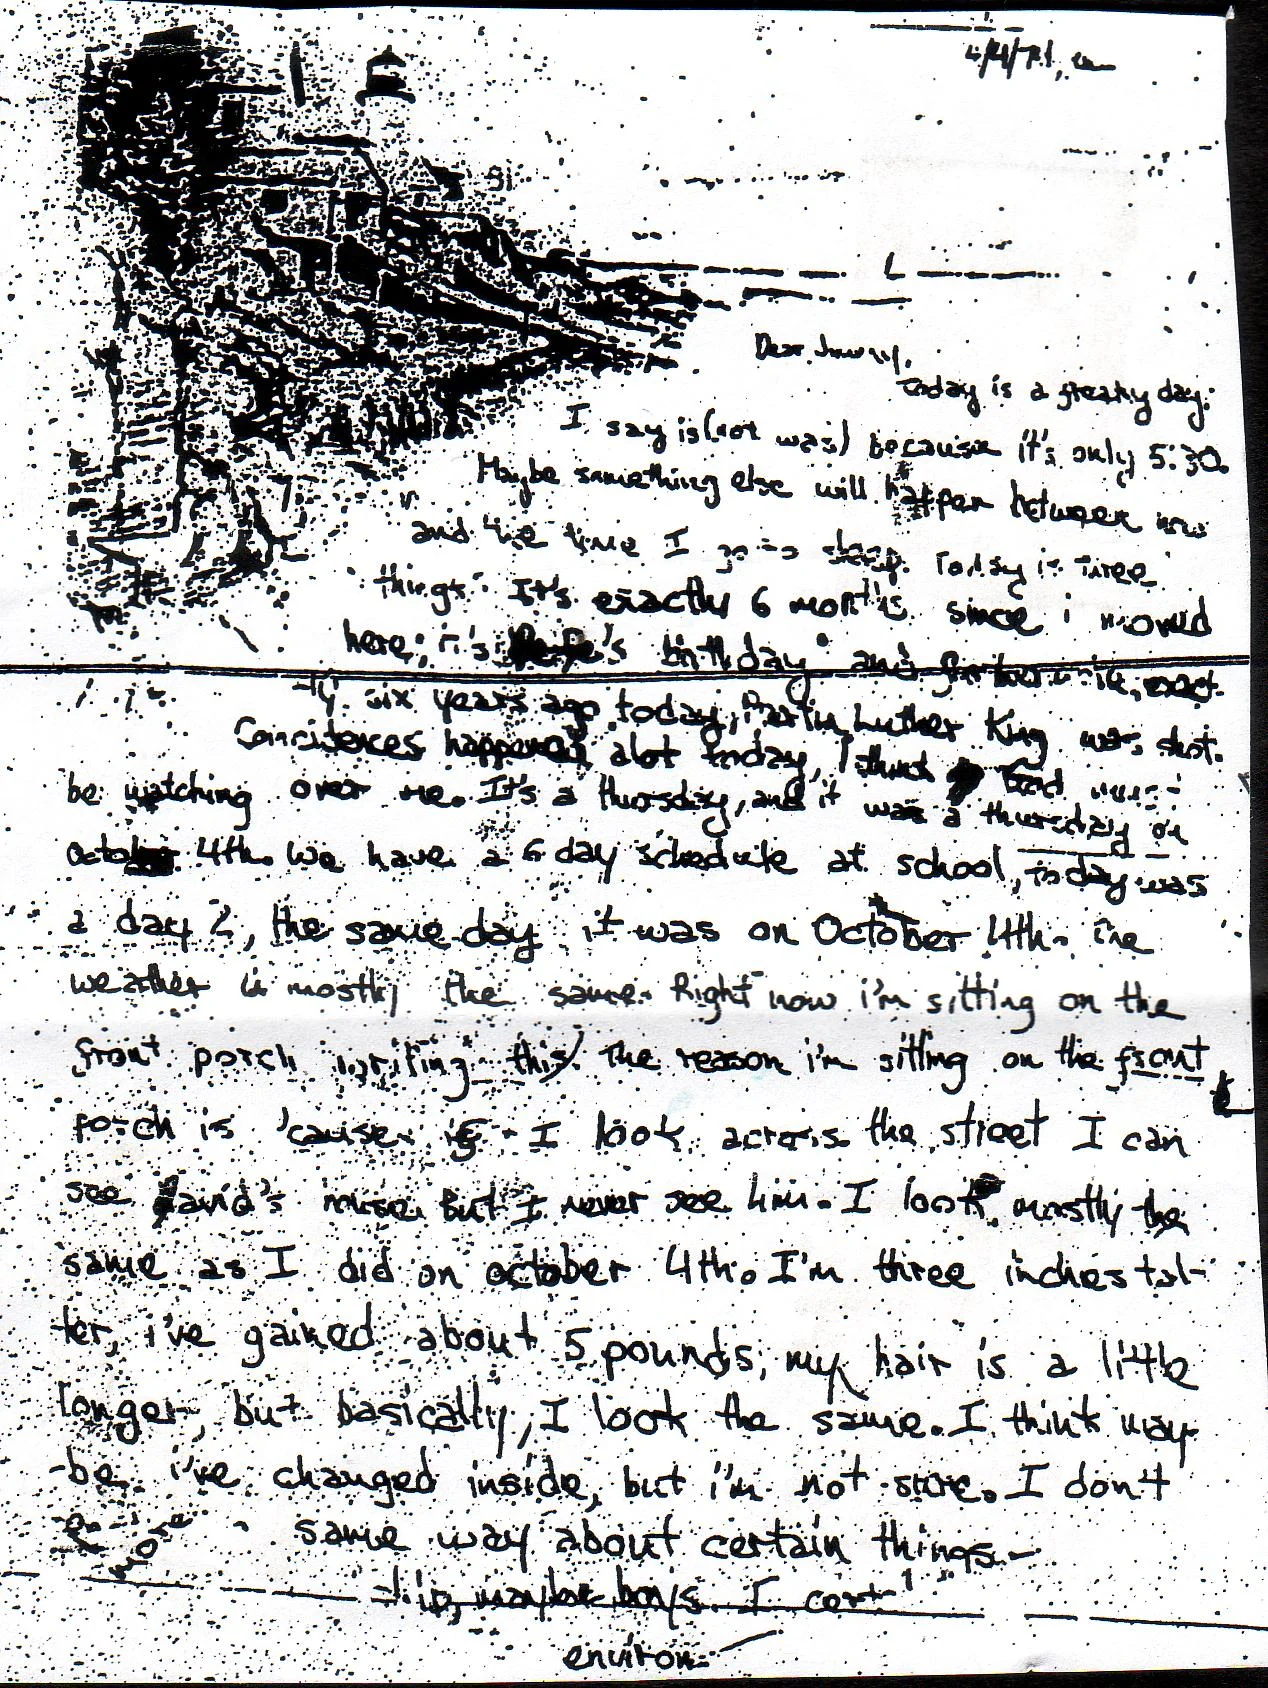 Dear
today is a freaky day.
I say is (not was) because it's only 5:30.
Maybe something else will happen between now
and the time I go to sleep. Today is three
things. It's exactly 6 months since i moved
here; it's 's birthday and exact-
ly six years ago today, Martin Luther King was shot.
Coincidences happened alot today, I think God must
be watching over me. It's a thursday, and it was a thursday on
October 4th. We have a 6 day schedule at school, today was
a day 2, the same day it was on October 4th. The
weather is mostly the same. Right now i'm sitting on the
front porch writing this) The reason i'm sitting on the front
porch is 'cause if I look across the street I can
see David's house. But I never see him. I look mostly the
same as I did on october 4th. I'm three inches tal-
ler, i've gained about 5 pounds, my hair is a little
longer, but basically, I look the same. I think may-
be i've changed inside, but i'm not sure. I don't
more same way about certain things-
maybe boys. I
environ-